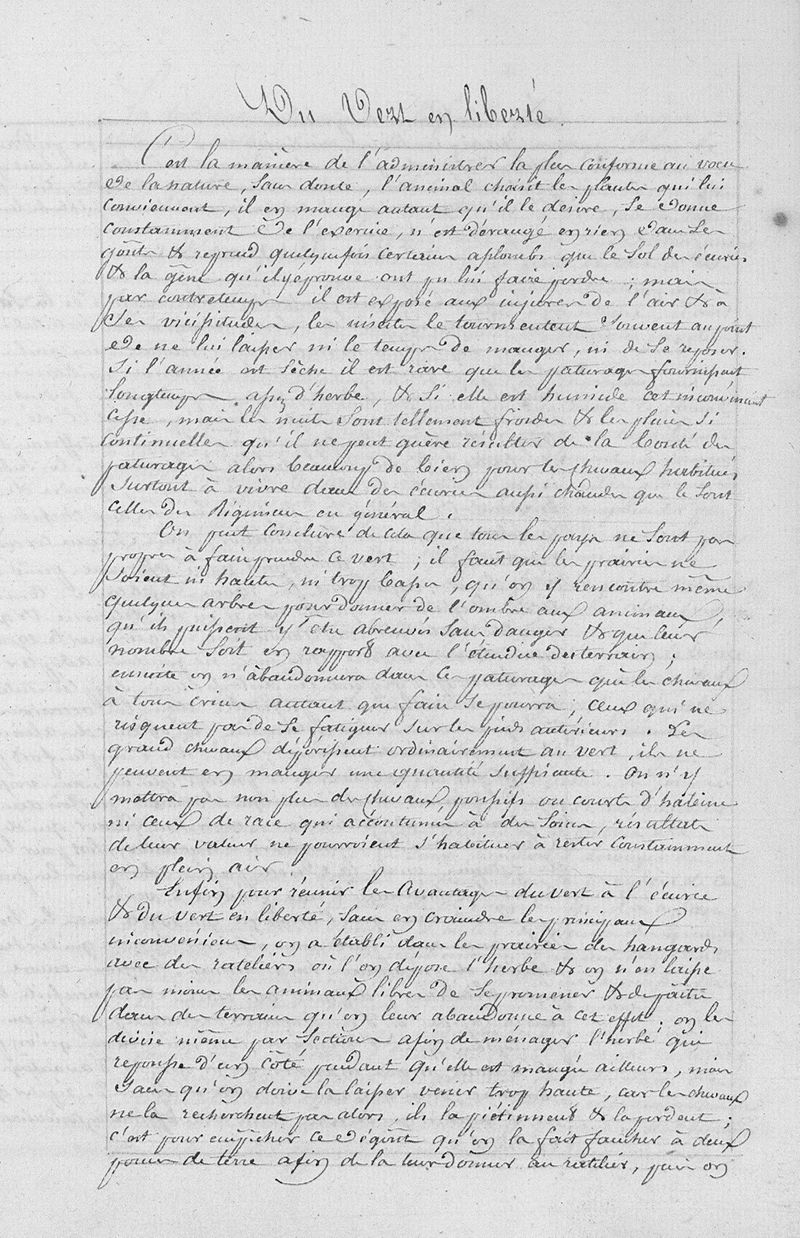 Du Vert en liberté.
C'est la manière de l'administrer la plus conforme au vœu
de la nature, sans doute, l'animal choisit les plantes qui lui
conviennent, il en mange autant qu'il le désire, se donne
constamment de l'exercice, n'est dérangé en rien dans ses
goûts & reprend quelquefois certains aplombs que le sol des écuries
& la gêne qu'il y éprouve ont pu lui faire perdre ; mais
par contretemps il est exposé aux injures de l'air & à
ses vicissitudes, les insectes le tourmentent souvent au point
de ne lui laisser ni le temps de manger, ni de se reposer.
Si l'année est sèche il est rare que les paturages fournissent
longtemps assez d'herbe, & si elle est humide cet inconvénient
cesse, mais les nuits sont tellement froides & les pluies si
continuelles qu'il ne peut guère résulter de la bonté des
paturages alors beaucoup de bien pour les chevaux habitués
surtout à vivre dans des écuries aussi chaudes que le sont
celles des Régimens en général.
On peut conclure de cela que tous les pays ne sont pas
propres à faire prendre ce vert ; il faut que les prairies ne
soient ni hautes, ni trop basses, qu'on y rencontre même
quelques arbres pour donner de l'ombre aux animaux,
qu'ils puissent y être abreuvés sans danger & que leur
nombre soit en rapport avec l'étendue des terrains ;
ensuite on n'abandonnera dans ces paturages que les chevaux
à tous crins autant que faire se pourra ; ceux qui ne
risquent pas de se fatiguer sur les pieds antérieurs. Les
grands chevaux dépérissent ordinairement au vert, ils ne
peuvent en manger une quantité suffisante. On n'y
mettra pas non plus des chevaux poussifs ou courts d'haleine
ni ceux de race qui accoutumés à des soins, résultats
de leur valeur ne pourroient s'habituer à rester constamment
en plein air.
Enfin pour réunir les avantages du vert à l'écurie
& du vert en liberté, sans en craindre les principaux
inconveniens, on a établi dans les prairies des hangards
avec des rateliers où l'on dépose l'herbe & on n'en laisse
pas moins les animaux libres de se promener & de paître
dans des terrains qu'on leur abandonne à cet effet ; on les
divise même par sections afin de ménager l'herbe qui
repousse d'un côté pendant qu'elle est mangée ailleurs, mais
sans qu'on doive la laisser venir trop haute, car les chevaux
ne la recherchent pas alors, ils la piétinent & la perdent ;
c'est pour empêcher ce dégoût qu'on la fait faucher à deux
pouces de terre afin de la leur donner au ratelier, puis on